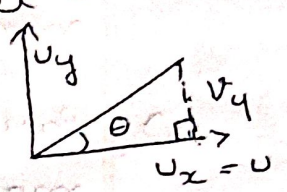 u_y
θ
v_y
u_x = u